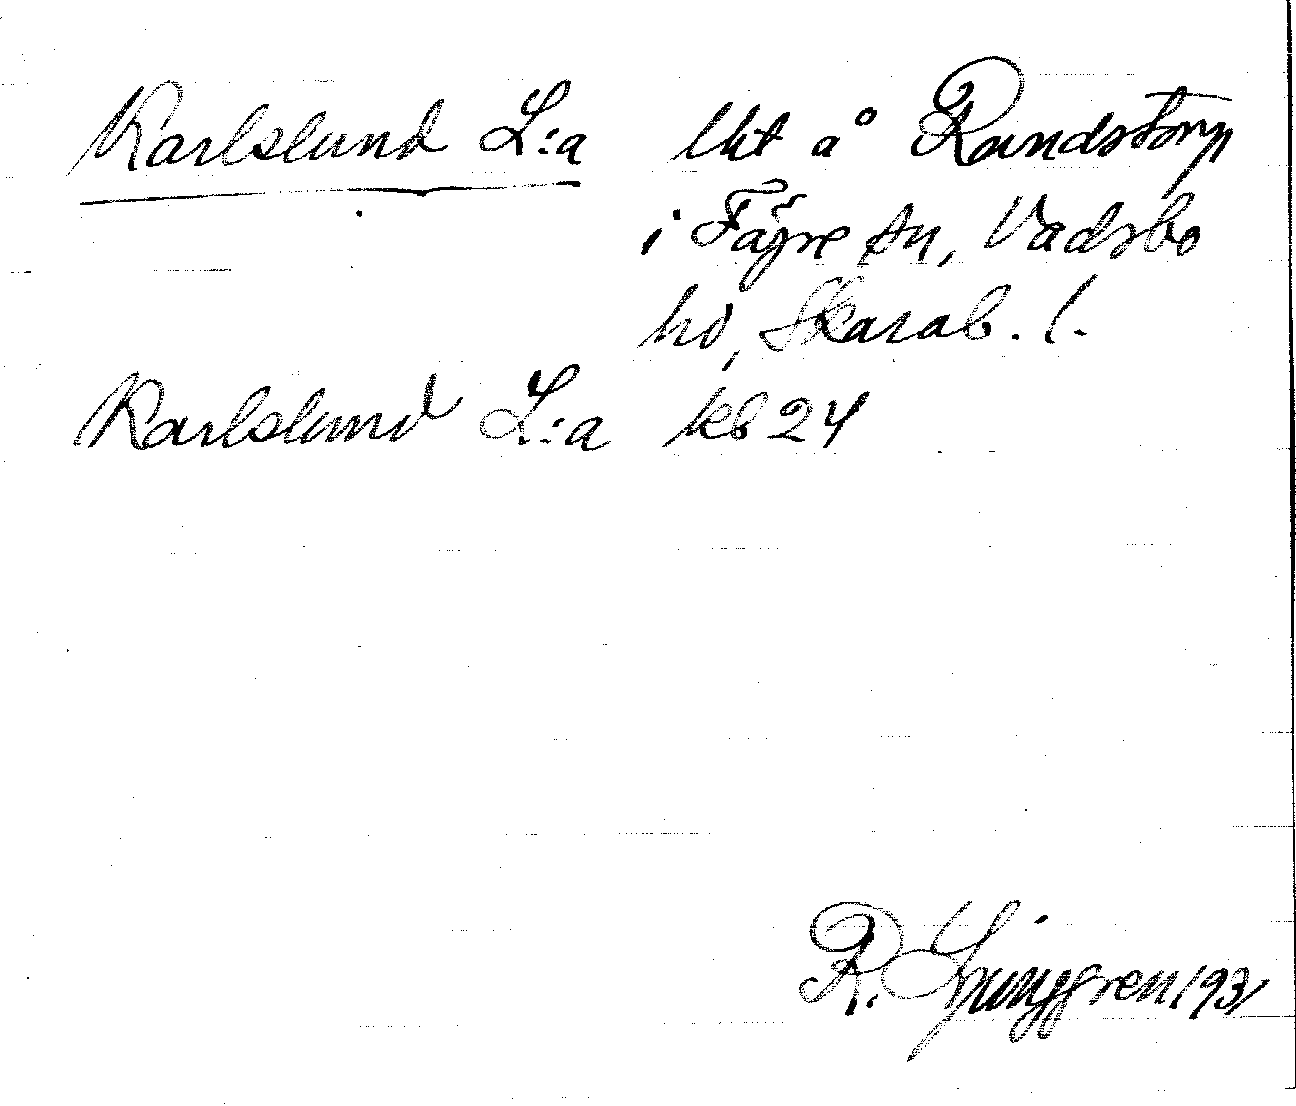 Karlslund L:a lht å Randstorp
i Fägre sn, Vadsbo
hd, Skarab. l.
Karlslund L:a kb 24
R. Ljunggren 1931